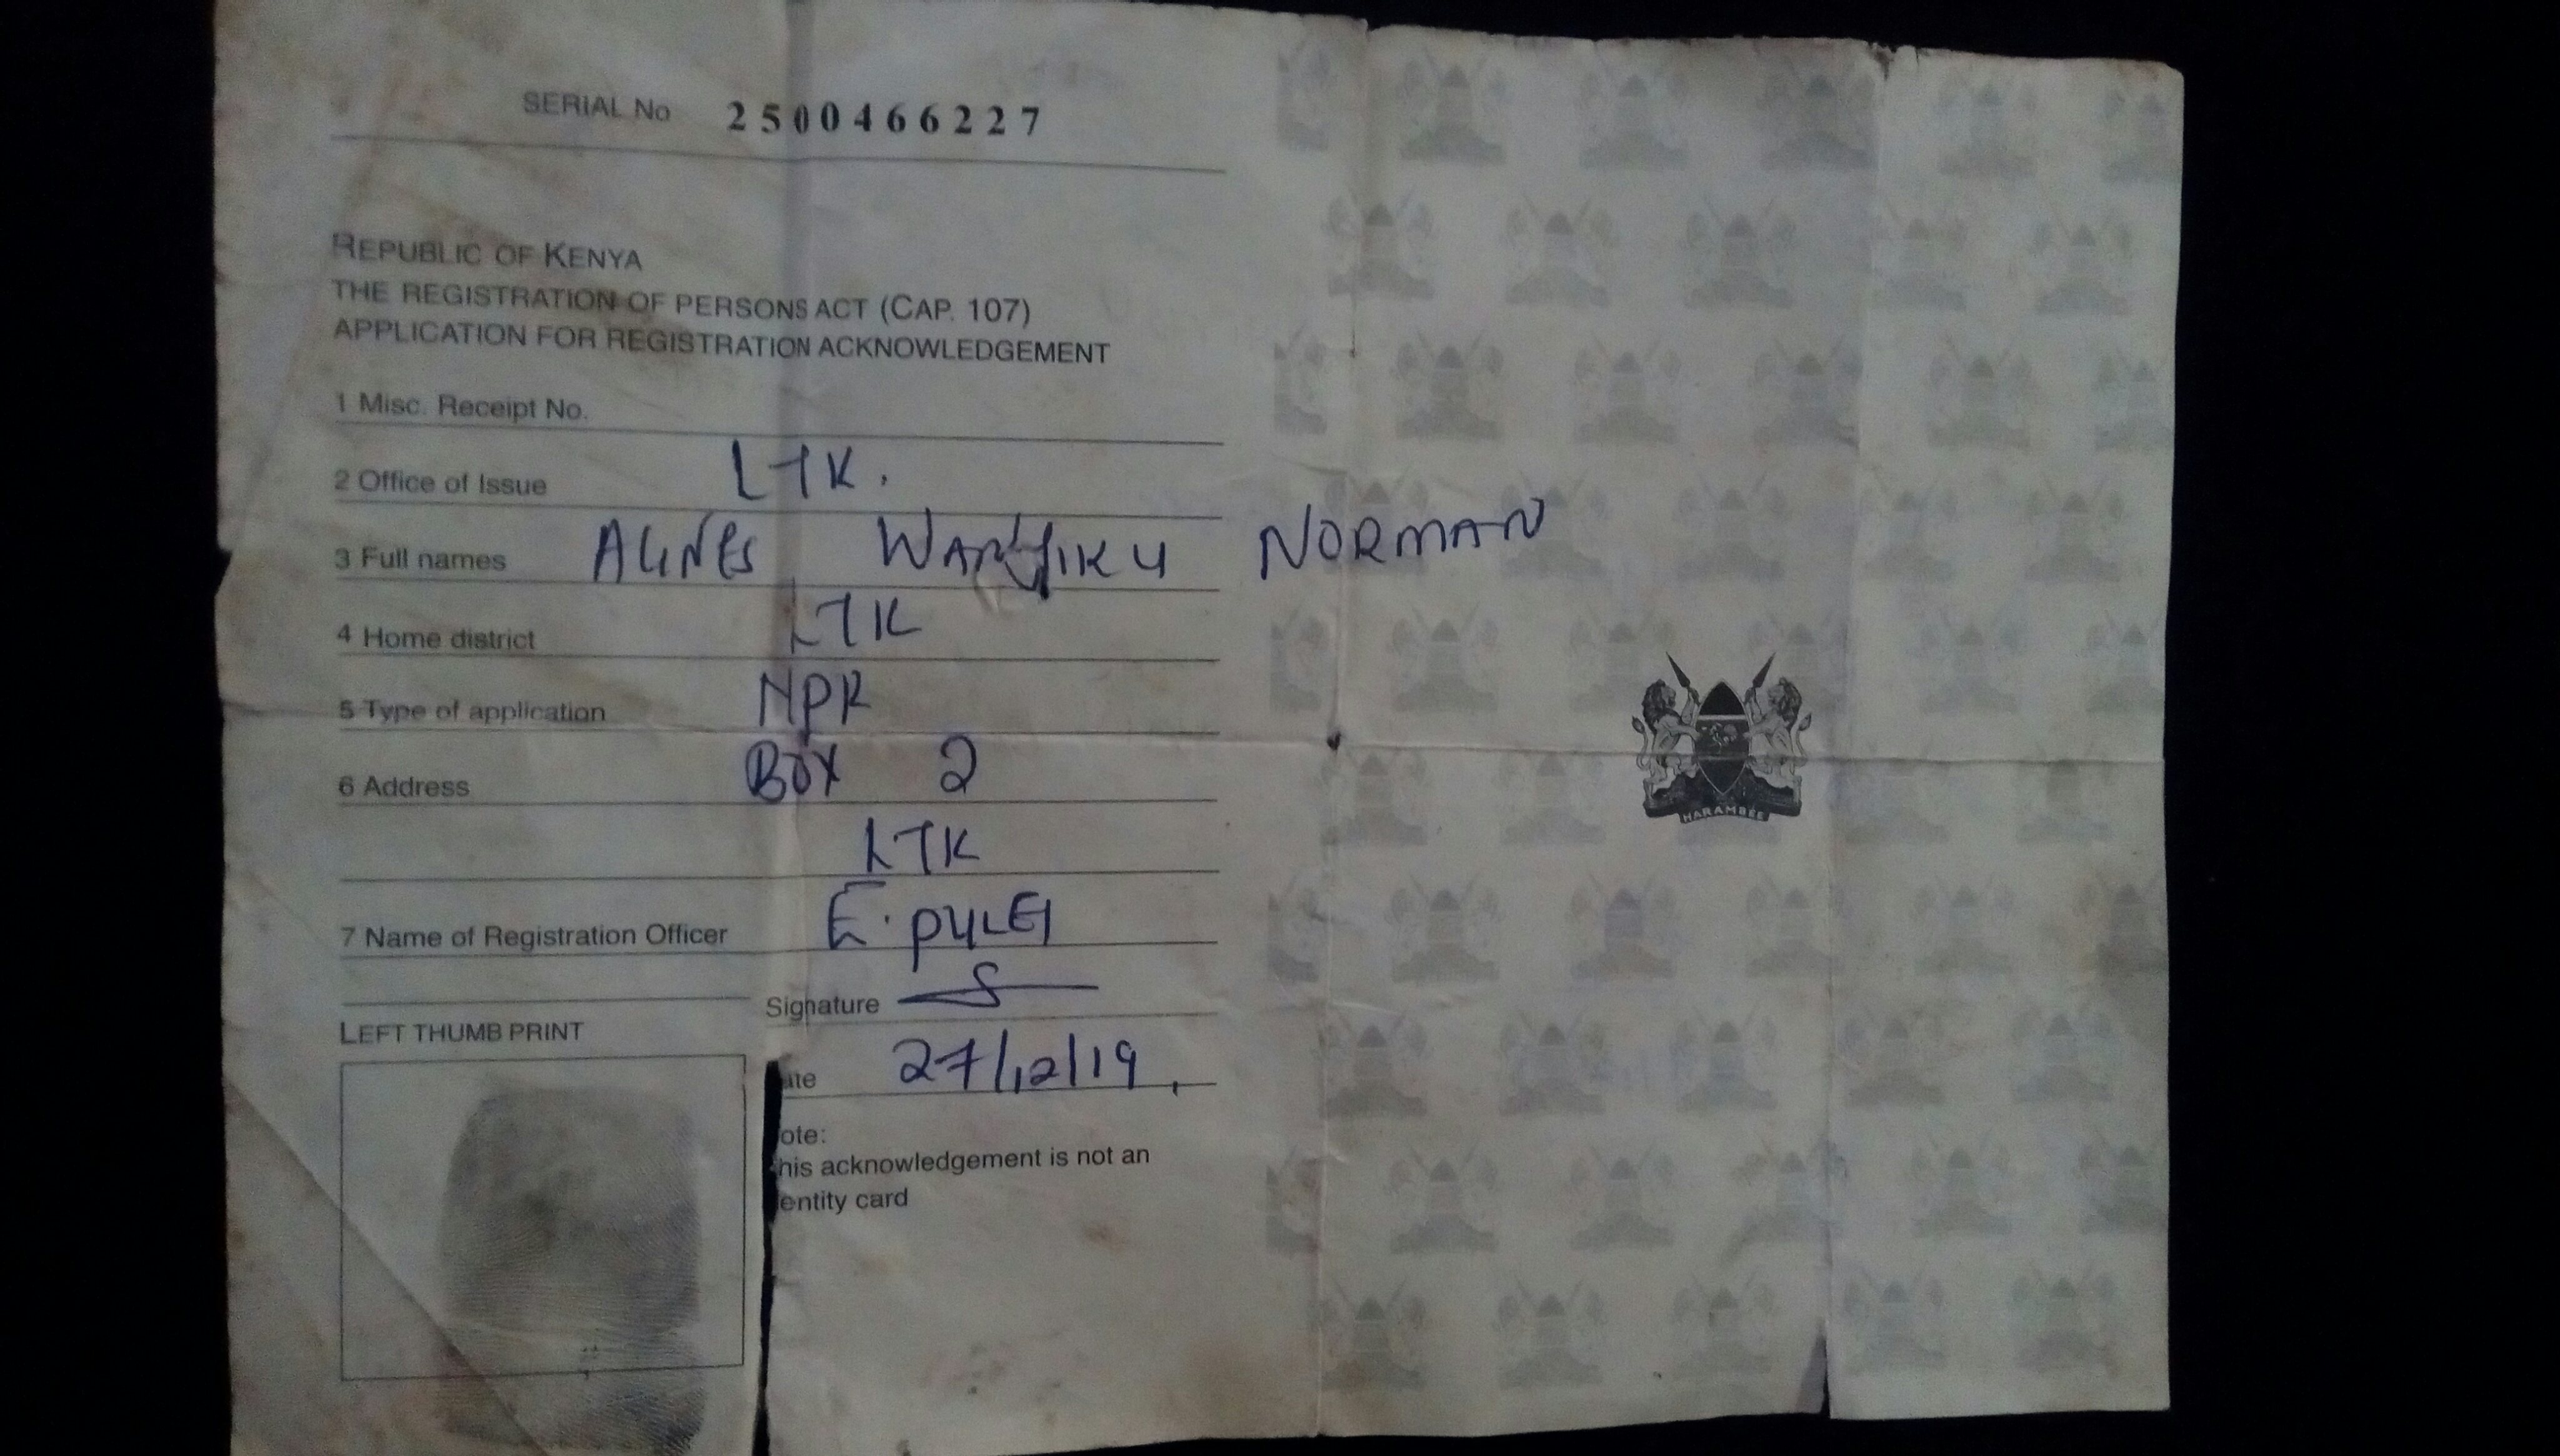 SERIAL No 2500466227
REPUBLIC OF KENYA
THE REGISTRATION OF PERSONS ACT (CAP. 107)
APPLICATION FOR REGISTRATION ACKNOWLEDGEMENT
1 Misc. Receipt No.
2 Office of Issue LTK.
3 Full names AGNES WANJIKU NORMAN
4 Home district LTK
5 Type of application NPR
6 Address BOX 2
LTK
7 Name of Registration Officer E. PULEI
Signature
LEFT THUMB PRINT
ate 27/12/19
ote:
his acknowledgement is not an
entity card
HARAMBEE